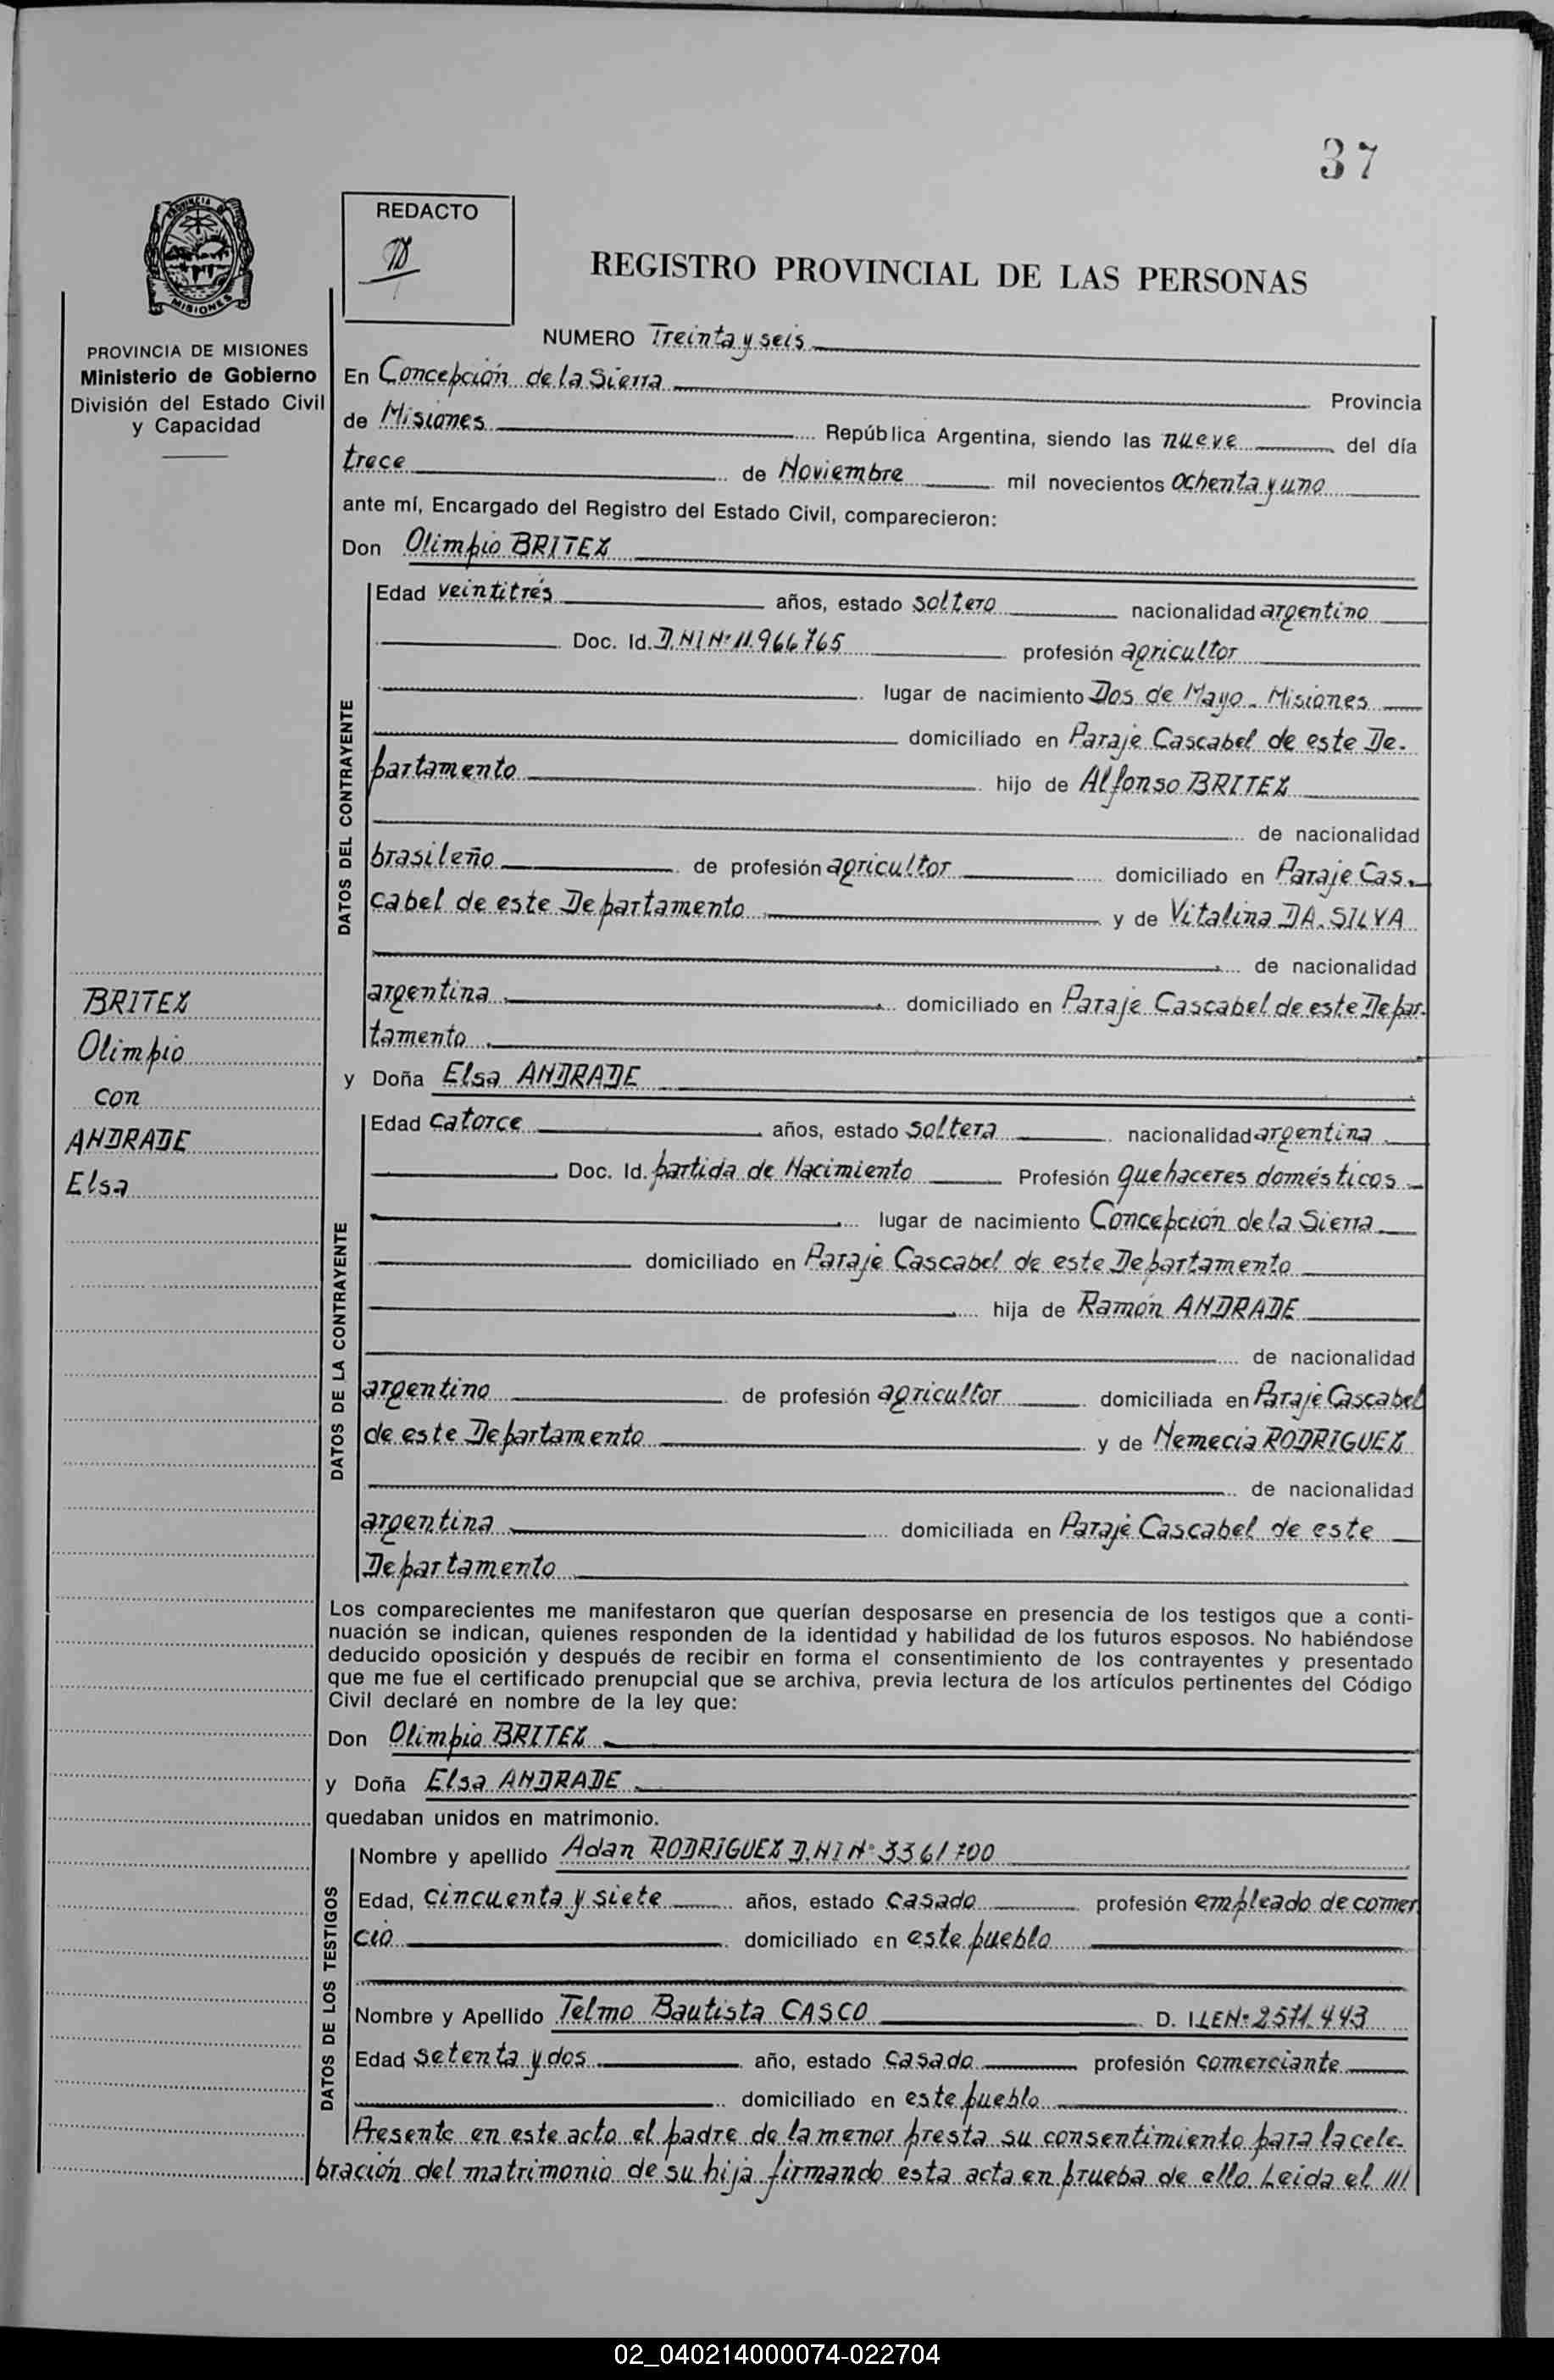 37
REDACTO
REGISTRO PROVINCIAL DE LAS PERSONAS
PROVINCIA DE MISIONES
Ministerio de Gobierno
División del Estado Civil
y Capacidad
NUMERO Treinta y seis
En Concepción de la Sierra Provincia
de Misiones República Argentina, siendo las nueve del día
trece de Noviembre mil novecientos ochenta y uno
ante mí, Encargado del Registro del Estado Civil, comparecieron:
Don Olimpio BRITEZ
DATOS DEL CONTRAYENTE
Edad veintitrés años, estado soltero nacionalidad argentino
Doc. Id. D.NI Nº 11.966765 profesión agricultor
lugar de nacimiento Dos de Mayo - Misiones
domiciliado en Paraje Cascabel de este De-
partamento hijo de Alfonso BRITEZ
de nacionalidad
brasileño de profesión agricultor domiciliado en Paraje Cas-
cabel de este Departamento y de Vitalina DA SILVA
de nacionalidad
argentina domiciliado en Paraje Cascabel de este Depar-
tamento
BRITEZ
Olimpio
con
ANDRADE
Elsa
y Doña Elsa ANDRADE
DATOS DE LA CONTRAYENTE
Edad catorce años, estado soltera nacionalidad argentina
Doc. Id. partida de Nacimiento Profesión quehaceres domésticos
lugar de nacimiento Concepción de la Sierra
domiciliado en Paraje Cascabel de este Departamento
hija de Ramón ANDRADE
de nacionalidad
argentino de profesión agricultor domiciliada en Paraje Cascabel
de este Departamento y de Nemecia RODRIGUEZ
de nacionalidad
argentina domiciliada en Paraje Cascabel de este
Departamento
Los comparecientes me manifestaron que querían desposarse en presencia de los testigos que a conti-
nuación se indican, quienes responden de la identidad y habilidad de los futuros esposos. No habiéndose
deducido oposición y después de recibir en forma el consentimiento de los contrayentes y presentado
que me fue el certificado prenupcial que se archiva, previa lectura de los artículos pertinentes del Código
Civil declaré en nombre de la ley que:
Don Olimpio BRITEZ
y Doña Elsa ANDRADE
quedaban unidos en matrimonio.
DATOS DE LOS TESTIGOS
Nombre y apellido Adan RODRIGUEZ D.NI Nº 3361700
Edad, cincuenta y siete años, estado casado profesión empleado de comer
cio domiciliado en este pueblo
Nombre y Apellido Telmo Bautista CASCO D. I. LE Nº 2571.443
Edad setenta y dos año, estado casado profesión comerciante
domiciliado en este pueblo
Presente en este acto el padre de la menor presta su consentimiento para la cele-
bración del matrimonio de su hija firmando esta acta en prueba de ello. Leida el ///
02_040214000074-022704